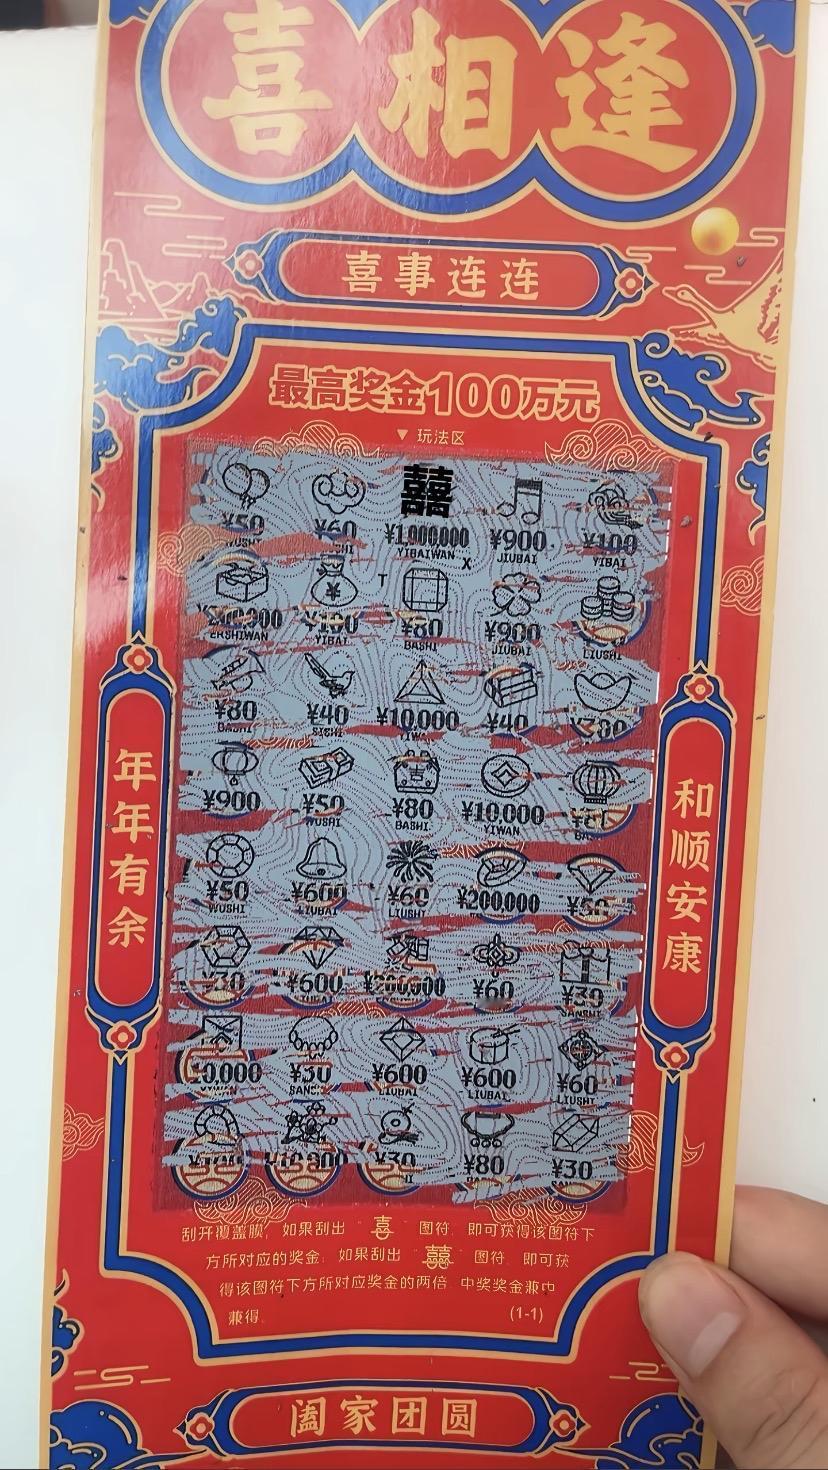 喜相逢
喜事连连
最高奖金100万元
▼ 玩法区
¥50 ¥60 囍 ¥1,000,000 ¥900 ¥100
WUSHI YIBAIWAN JIUBAI YIBAI
X
T
¥100 ¥80 ¥900
ERSHIWAN YIBAI BASHI JIUBAI LIUSHI
¥80 ¥40 ¥10,000 ¥40 ¥80
BASHI SISHI YIWAN
¥900 ¥50 ¥80 ¥10,000
WUSHI BASHI YIWAN
¥50 ¥600 ¥60 ¥200,000 ¥50
WUSHI LIUBAI LIUSHI
¥600 ¥60 ¥30
SANSHI
0,000 ¥30 ¥600 ¥600 ¥60
LIUBAI LIUBAI LIUSHI
¥30 ¥80 ¥30
年年有余
和顺安康
刮开覆盖膜，如果刮出“喜”图符，即可获得该图符下
方所对应的奖金；如果刮出“囍”图符，即可获
得该图符下方所对应奖金的两倍。中奖奖金兼中
兼得。
(1-1)
阖家团圆